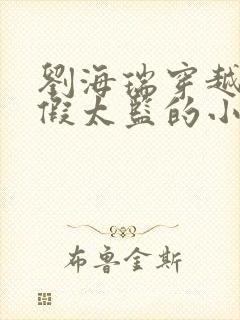 劉海瑞穿越
假太監的小
布鲁金斯